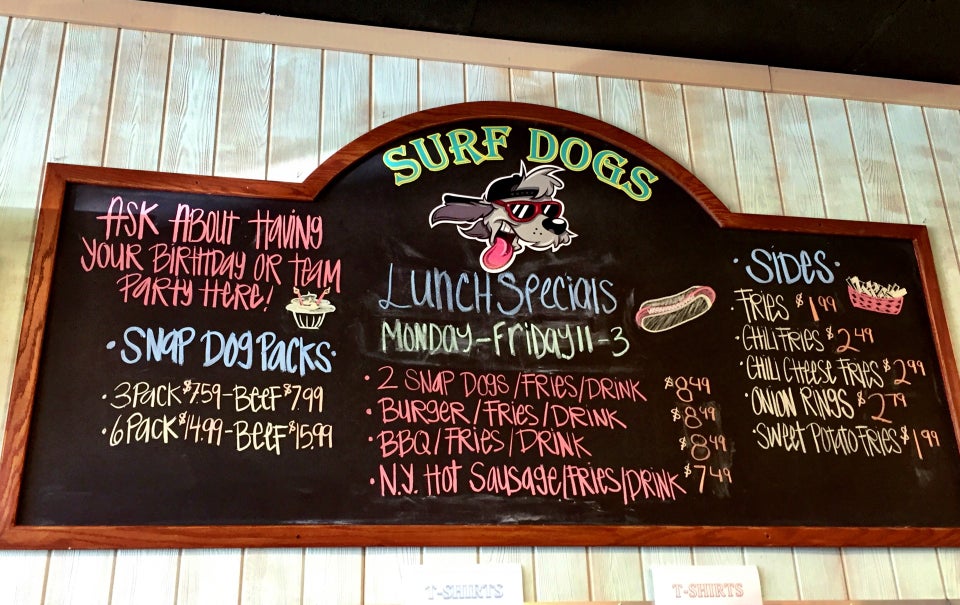 SURF DOGS
ASK ABOUT HAVING
YOUR BIRTHDAY OR TEAM
PARTY HERE!
• SNAP DOG PACKS •
• 3 PACK $7.59 - BEEF $7.99
• 6 PACK $14.99 - BEEF $15.99
LUNCH SPECIALS
MONDAY - FRIDAY 11 - 3
• 2 SNAP DOGS / FRIES / DRINK $8.49
• BURGER / FRIES / DRINK $8.49
• BBQ / FRIES / DRINK $8.49
• N.Y. HOT SAUSAGE / FRIES / DRINK $7.49
• SIDES •
FRIES $1.99
• CHILI FRIES $2.49
• CHILI CHEESE FRIES $2.99
• ONION RINGS $2.79
• SWEET POTATO FRIES $1.99
T-SHIRTS
T-SHIRTS